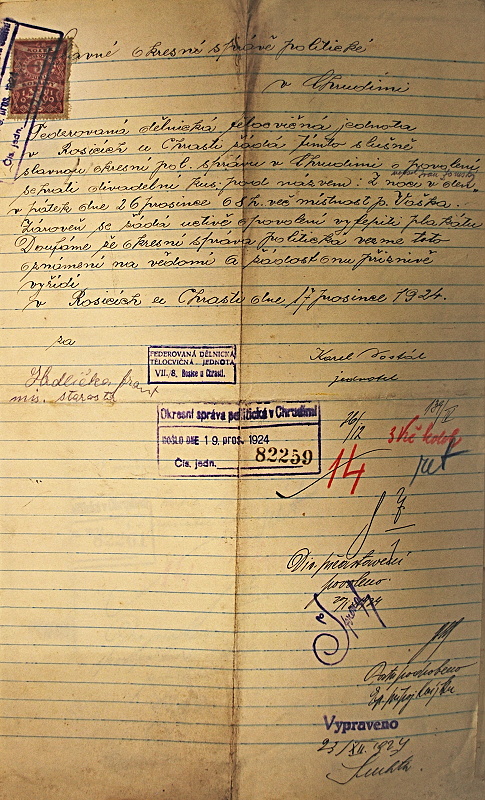 Slavné okresní správě politické
v Chrudimi
Federovaná dělnická tělocvičná jednota
v Rosicích u Chrasti žádá tímto slušně
slavnou okresní pol. správu v Chrudimi o povolení
sehráti divadelní kus pod názvem: Z noci v den
v pátek dne 26 prosince 6 h. več místnost p. Vaška.
Zároveň se žádá uctivě o povolení vylepiti plakátu
Doufáme že okresní správa politická vezme toto
oznámení na vědomí a žádost onu příznivě
vyřídí
v Rosicích u Chrasti dne 17 prosince 1924.
za
FEDEROVANÁ DĚLNICKÁ
TĚLOCVIČNÁ JEDNOTA
VII. 8. Rosice u Chrasti.
Karel Dostál
jednatel
Hudlička Frant
mís. starosta
Okresní správa politická v Chrudimi
DOŠLO DNE 19. pros. 1924
Čís. jedn. 82259
26/12
139/V
3 Kč kolek
14
Div. představení
povoleno.
Vypraveno
23/XII. 1924
Čís. jedn.